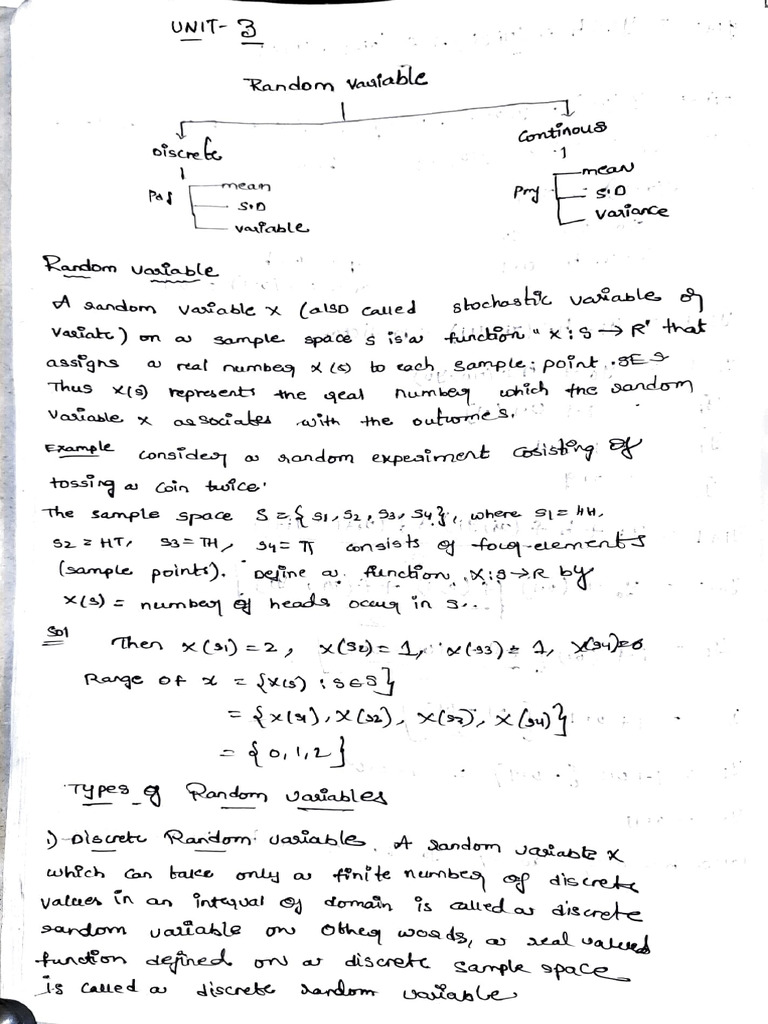 UNIT- 3
Random variable
Discrete
Continous
mean
S.D
variable
mean
S.D
variance
Random variable
A random variable x (also called stochastic variable or
variate) on a sample space s is a function "x : s → R" that
assigns a real number x(s) to each sample point s∈s
Thus x(s) represents the real number which the random
variable x associates with the outcomes.
Example consider a random experiment cosisting of
tossing a coin twice.
The sample space S = {s1, s2, s3, s4}, where s1 = HH,
s2 = HT, s3 = TH, s4 = TT consists of four elements
(sample points). Define a function, x : s → R by
x(s) = number of heads occur in s..
Sol Then x(s1) = 2, x(s2) = 1, x(s3) = 1, x(s4)=0
Range of x = {x(s) : s∈s}
= {x(s1), x(s2), x(s3), x(s4)}
= {0,1,2}
Types of Random variables
1) Discrete Random variable. A random variable x
which can take only a finite number of discrete
values in an interval of domain is called a discrete
random variable on other words, a real valued
function defined on a discrete sample space
is called a discrete random variable